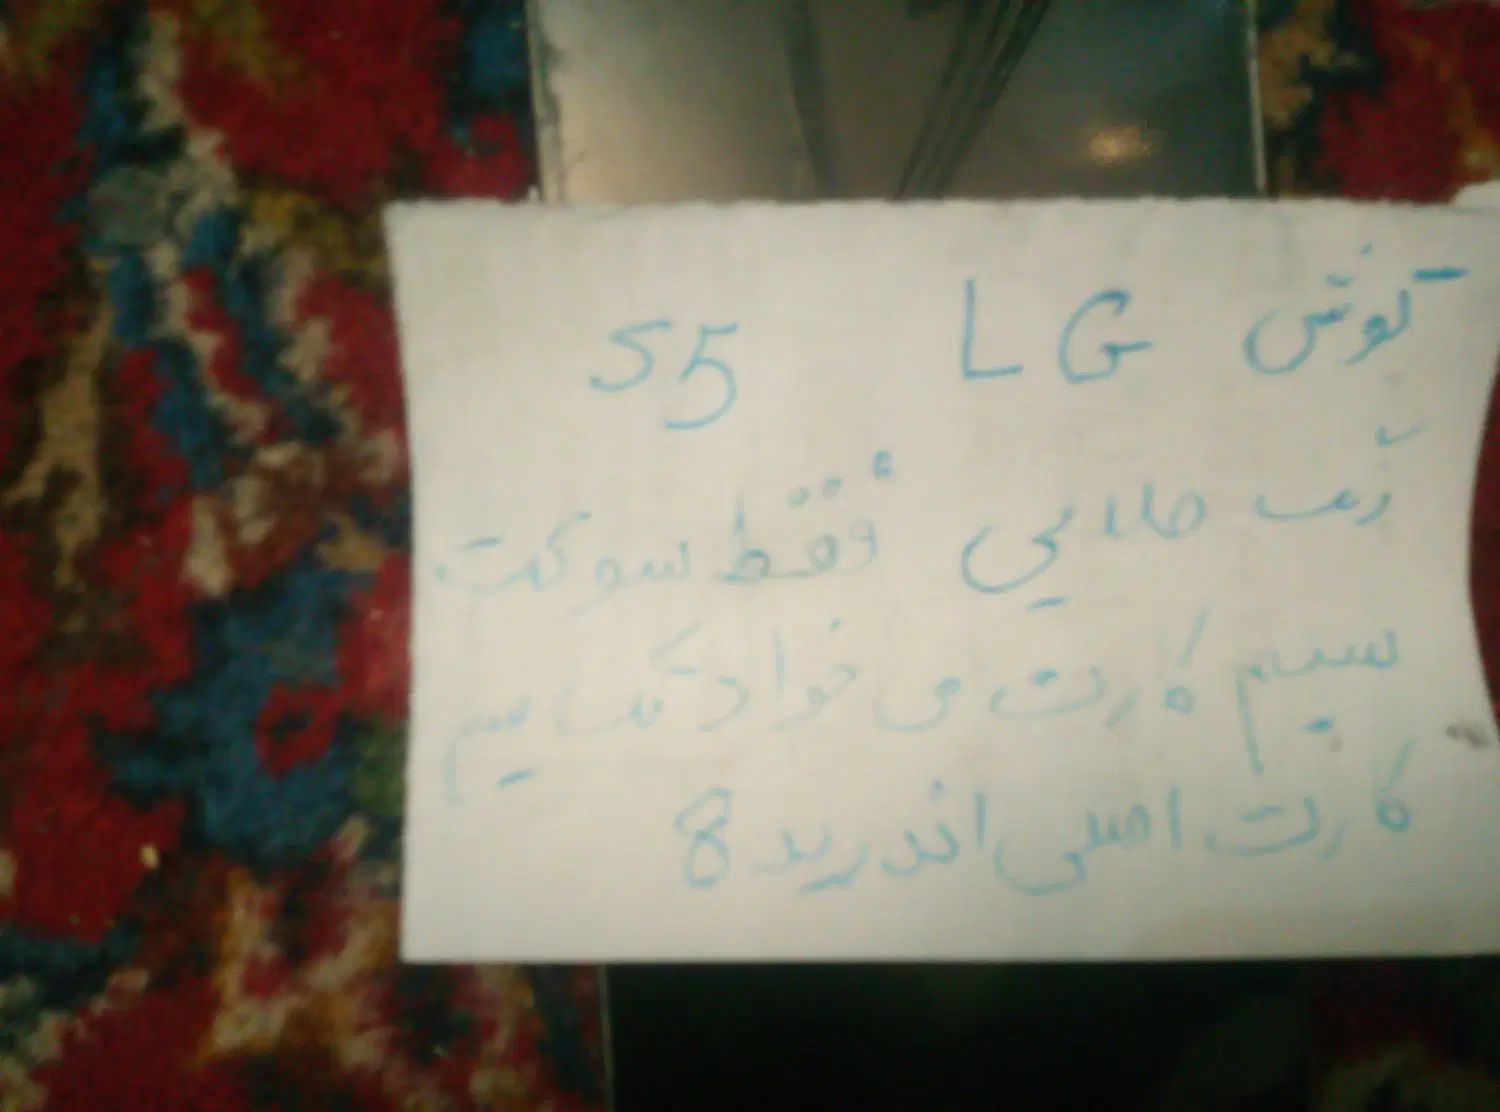 گوش LG S5
رنگ طلایی فقط سوکت
سیم کارت می خواد تک سیم
کارت اصلی اندرید 8